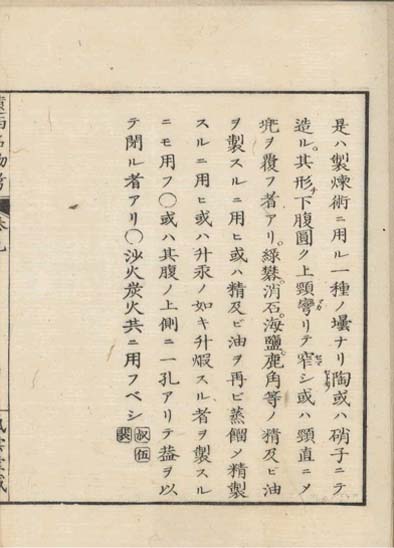 是ハ製煉術ニ用ル一種ノ壜ナリ陶或ハ硝子ニテ
造ル。其形チ下腹圓ク上頸彎リテ窄シ或ハ頸直ニメ
兜ヲ覆フ者アリ。綠礬。消石。海鹽。鹿角等ノ精及ヒ油
ヲ製スルニ用ヒ或ハ精及ビ油ヲ再ビ蒸餾メ精製
スルニ用ヒ或ハ升汞ノ如キ升煆スル者ヲ製スル
ニモ用フ〇或ハ其腹ノ上側ニ一孔アリテ葢ヲ以
テ閉ル者アリ〇沙火炭火共ニ用フベシ